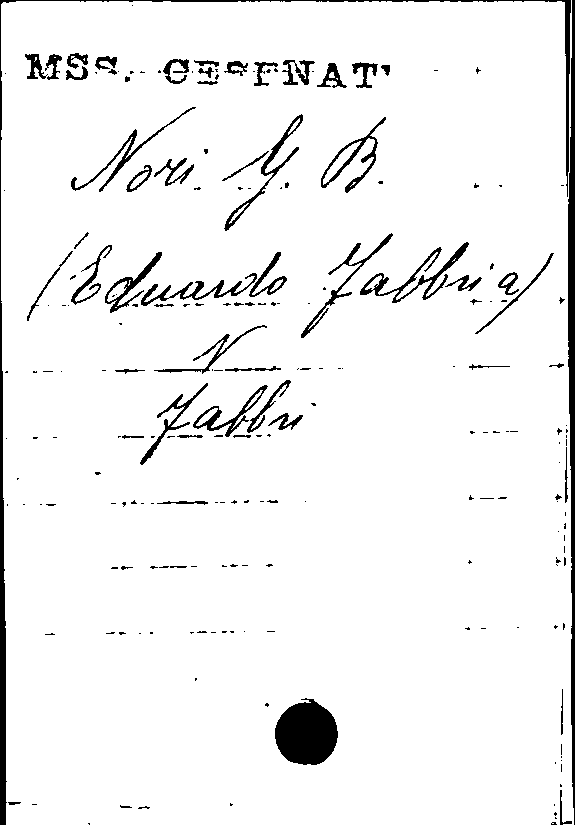 MSS. CESENAT
Nori G. B.
(Eduardo Fabbri a)
V
Fabbri